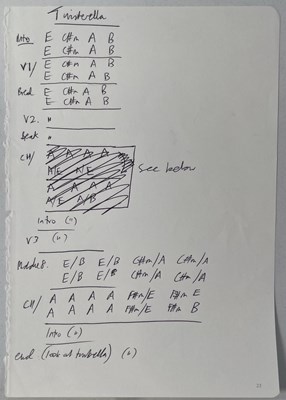 Twisterella
Intro E C#m A B
E C#m A B
V1/ E C#m A B
E C#m A B
Bred E C#m A B
E C#m A B
V2. "
Beak "
CH/ A A A A
A/E N/E
A A A A
A/E A/B
See below
Intro (")
V3 (")
Middle 8. E/B E/B C#m/A C#m/A
E/B E/B C#m/A C#m/A
CH/ A A A A F#m/E F#m E
A A A A F#m/E F#m B
Intro (")
end (look at twisterella) (")